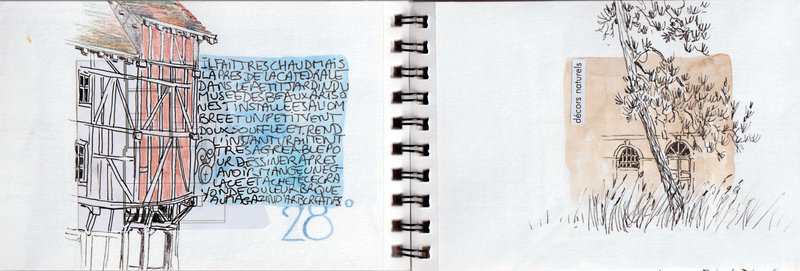 IL FAIT TRES CHAUD MAIS
LA PRES DE LA CATEDRALE
DANS LE PETIT JARDIN DU
MUSEE DES BEAUX ARTS O
N EST INSTALLEES A L'OM
BRE ET UN PETIT VENT
DOUX SOUFFLE ET REND
L'INSTANT VRAIMENT
TRES AGREABLE PO
UR DESSINER APRES
AVOIR MANGE UNE G
LACE ET ACHETE CE CRA
YON DE COULEUR BRIQUE
AU MAGAZIN D'ART CREATIFS
28°
décors naturels